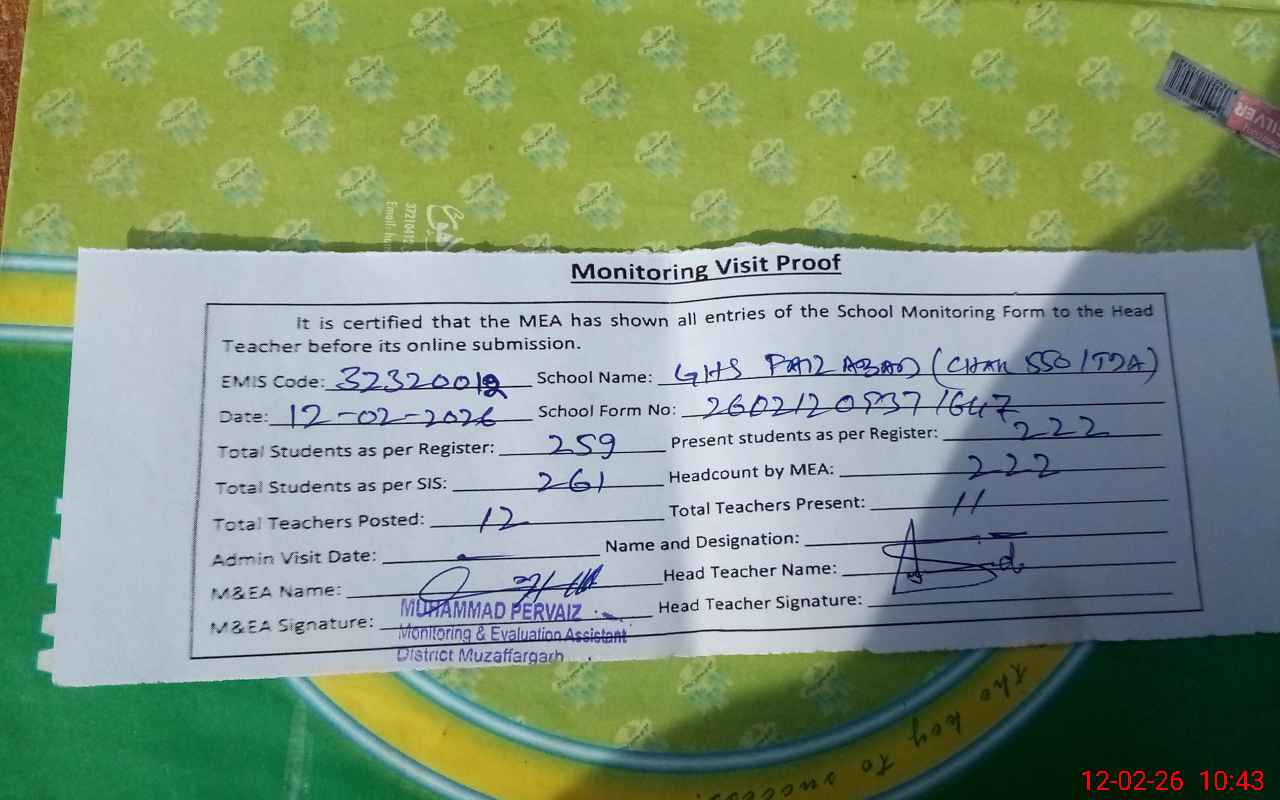 Monitoring Visit Proof
It is certified that the MEA has shown all entries of the School Monitoring Form to the Head
Teacher before its online submission.
EMIS Code: 32320012 School Name: GHS FAIZ ABAD (CHAK 550/TDA)
Date: 12-02-2026 School Form No: 26021209371647
Total Students as per Register: 259 Present students as per Register: 222
Total Students as per SIS: 261 Headcount by MEA: 222
Total Teachers Posted: 12 Total Teachers Present: 11
Admin Visit Date: - Name and Designation: -
M&EA Name: Head Teacher Name:
M&EA Signature: Head Teacher Signature:
MUHAMMAD PERVAIZ
Monitoring & Evaluation Assistant
District Muzaffargarh
the key to success
12-02-26 10:43